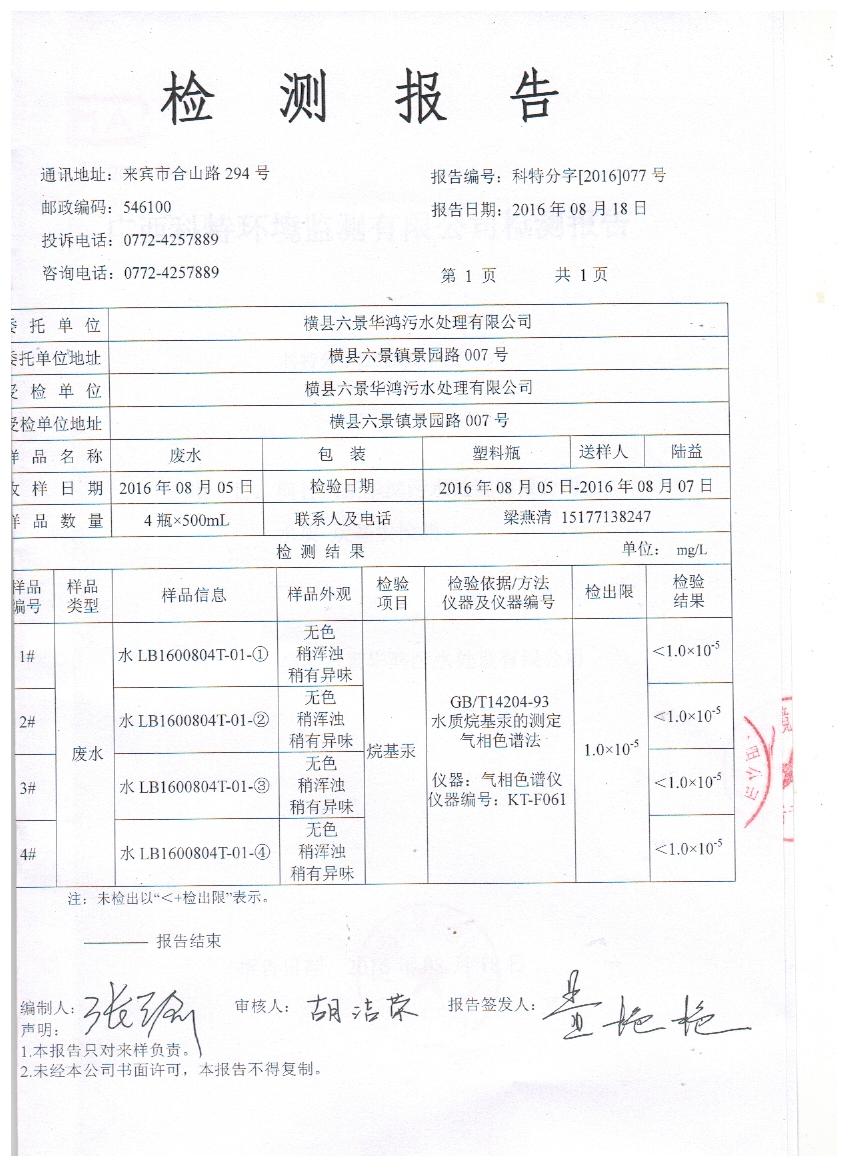 检 测 报 告
通讯地址：来宾市合山路 294 号
报告编号：科特分字[2016]077 号
邮政编码：546100
报告日期：2016 年 08 月 18 日
投诉电话：0772-4257889
咨询电话：0772-4257889
第 1 页 共 1 页
委 托 单 位 横县六景华鸿污水处理有限公司
委托单位地址 横县六景镇景园路 007 号
受 检 单 位 横县六景华鸿污水处理有限公司
受检单位地址 横县六景镇景园路 007 号
样 品 名 称 废水 包 装 塑料瓶 送样人 陆益
收 样 日 期 2016 年 08 月 05 日 检验日期 2016 年 08 月 05 日-2016 年 08 月 07 日
样 品 数 量 4 瓶×500mL 联系人及电话 梁燕清 15177138247
检 测 结 果 单位： mg/L
样品编号 样品类型 样品信息 样品外观 检验项目 检验依据/方法 仪器及仪器编号 检出限 检验结果
1# 水 LB1600804T-01-① 无色 稍浑浊 稍有异味 <1.0×10⁻⁵
2# 水 LB1600804T-01-② 无色 稍浑浊 稍有异味 <1.0×10⁻⁵
废水 烷基汞 1.0×10⁻⁵
GB/T14204-93
水质烷基汞的测定
气相色谱法
仪器：气相色谱仪
仪器编号：KT-F061
3# 水 LB1600804T-01-③ 无色 稍浑浊 稍有异味 <1.0×10⁻⁵
4# 水 LB1600804T-01-④ 无色 稍浑浊 稍有异味 <1.0×10⁻⁵
注：未检出以“＜+检出限”表示。
——— 报告结束
编制人： 审核人：胡洁荣 报告签发人：
声明：
1.本报告只对来样负责。
2.未经本公司书面许可，本报告不得复制。